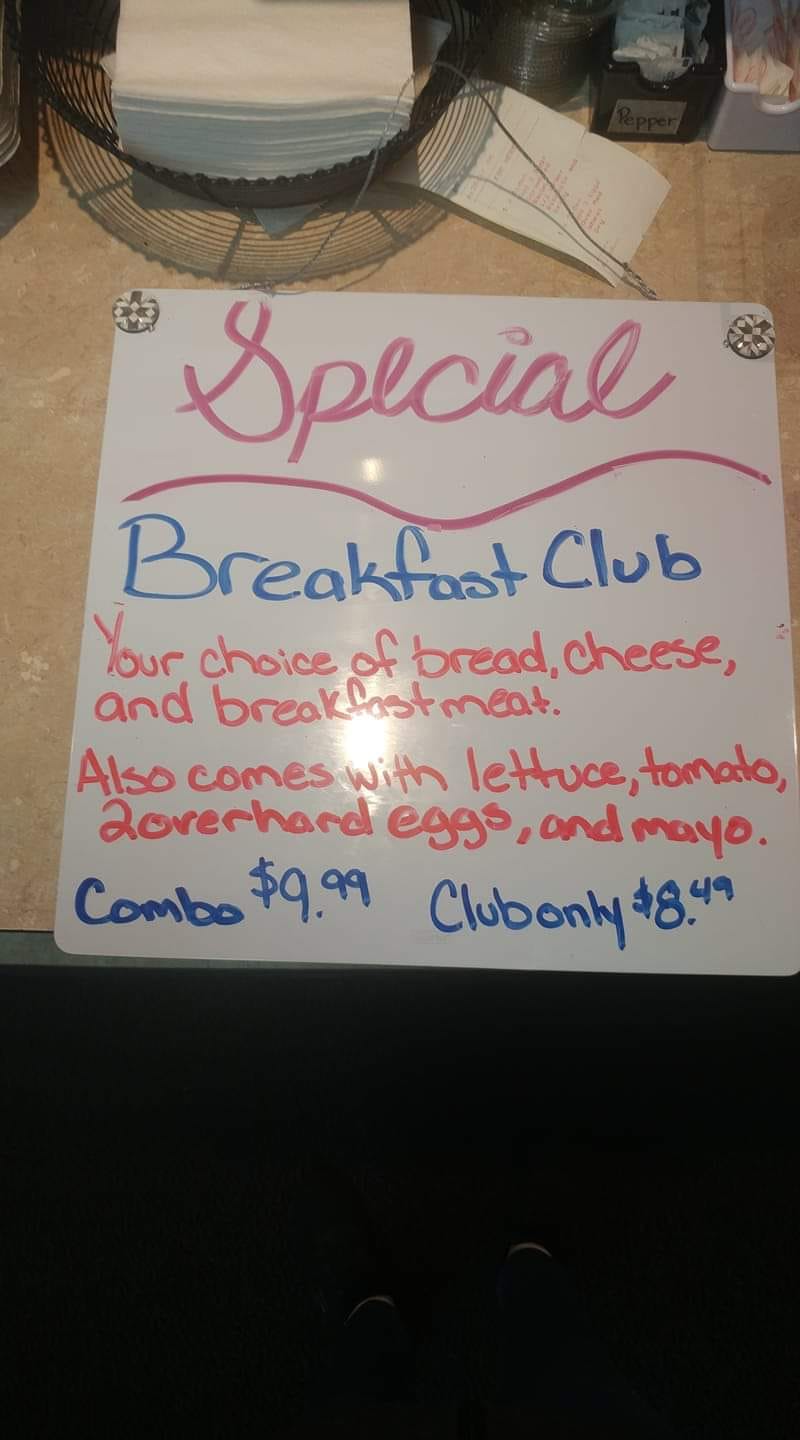 Pepper
Special
Breakfast Club
Your choice of bread, cheese,
and breakfast meat.
Also comes with lettuce, tomato,
2 overhard eggs, and mayo.
Combo $9.99 Club only $8.49